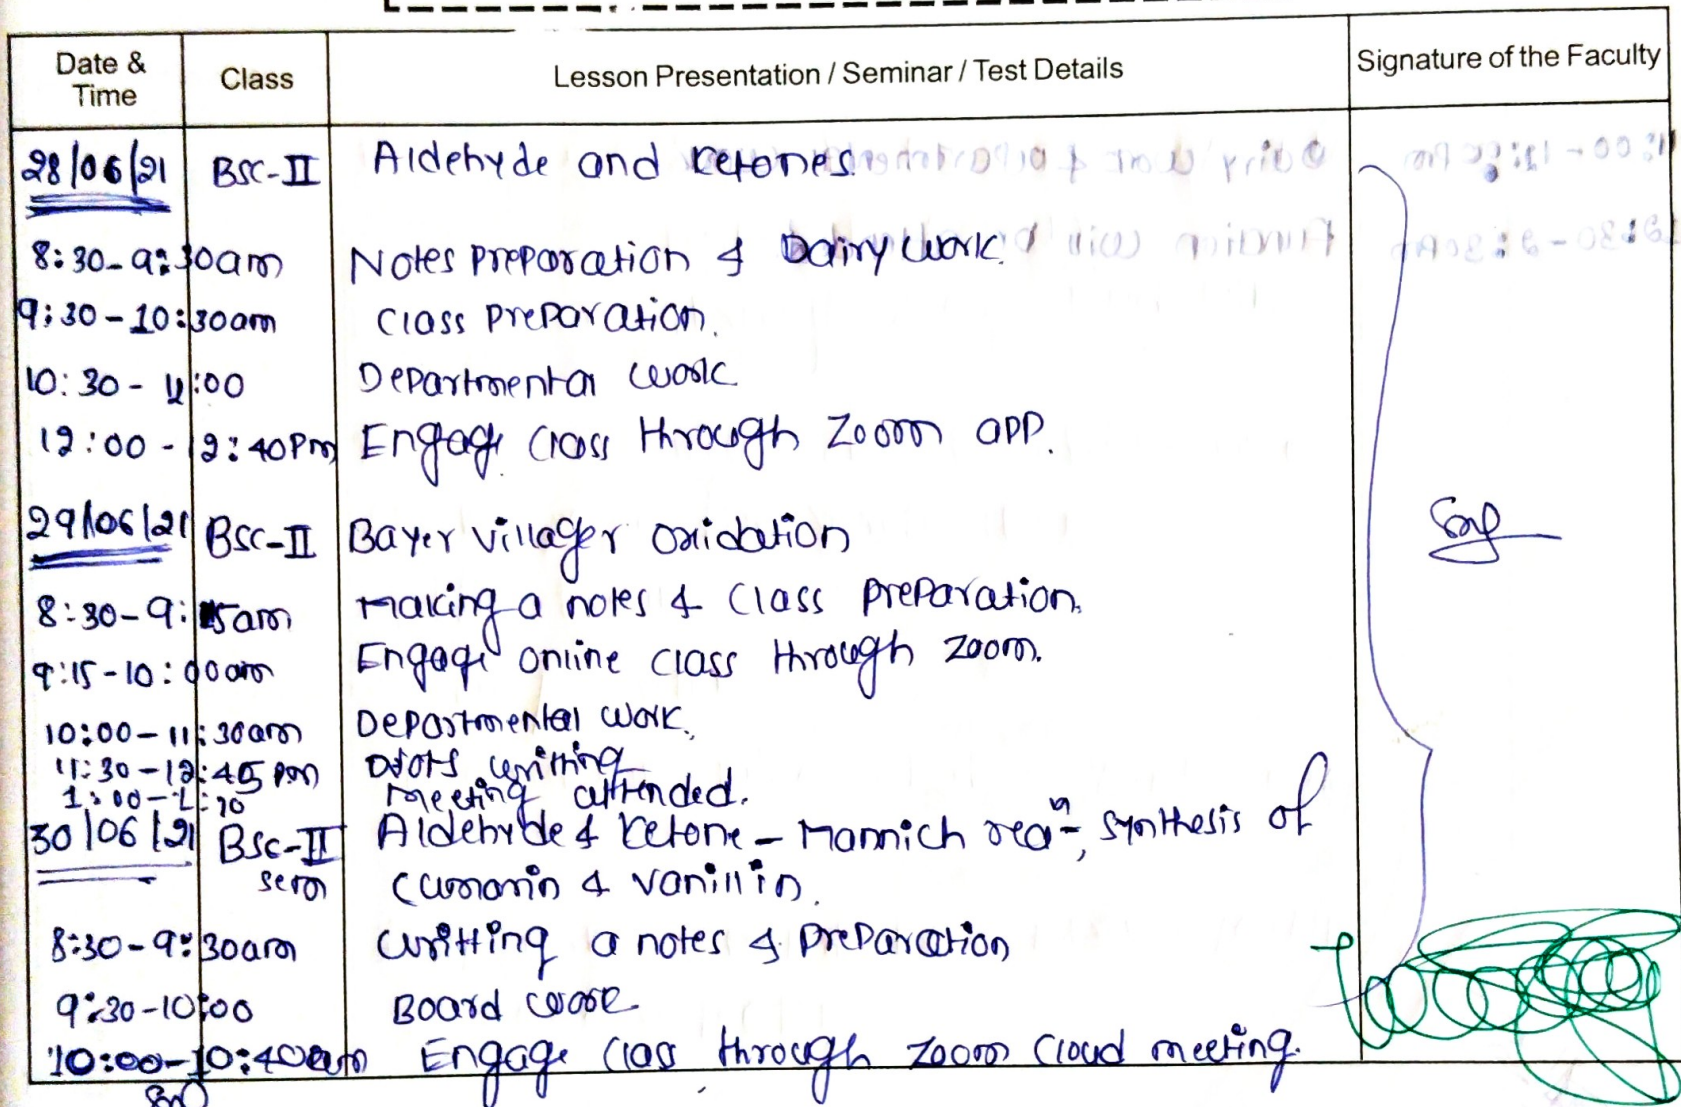 Date & Time Class Lesson Presentation / Seminar / Test Details Signature of the Faculty
28/06/21 BSC-II Aldehyde and Ketones.
8:30-9:30am Notes preparation & Dairy work.
9:30-10:30am Class preparation.
10:30-11:00 Departmental work
12:00-12:40Pm Engage Class through Zoom app.
29/06/21 BSC-II Bayer villager oxidation
8:30-9:15am Making a notes & Class preparation.
9:15-10:00am Engage online class through zoom.
10:00-11:30am Departmental work.
11:30-12:45pm writting
1:00- Meeting attended.
30/06/21 BSC-II Aldehyde & Ketone - Mannich reaⁿ, synthesis of
sem & vanillin.
8:30-9:30am writting a notes & preparation
9:30-10:00 Board work
10:00-10:40am Engage Class through zoom cloud meeting.